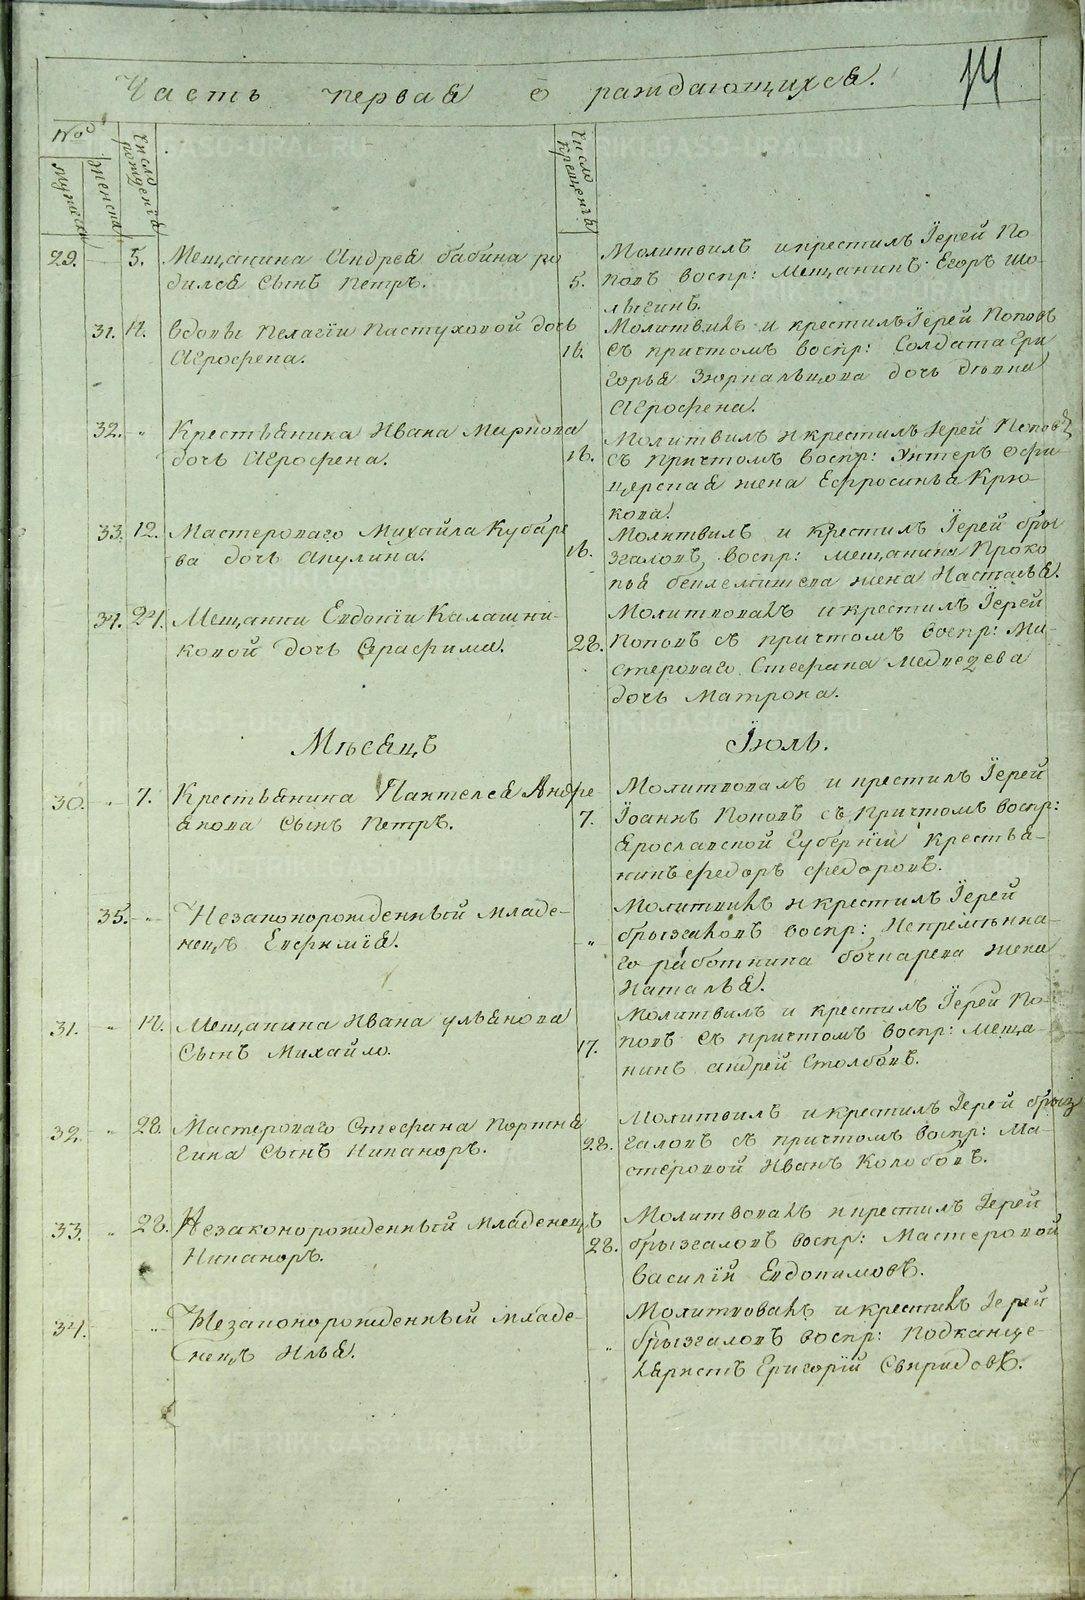 Часть первая о раждающихся.
14
№
мужеска
женска
Число рожденiя
Число крещенiя
29. 5. Мещанина Андрея бабина ро
дился Сынъ Петръ.
5. Молитвилъ и крестилъ Iерей По
повъ воспр: мещанинъ Егоръ
31. 11. вдовы Пелагiи Пастуховой дочь
Агрофена.
16. Молитвилъ и крестилъ Iерей Поповъ
съ причтомъ воспр: Солдата Гри
горья дочь девка
Агрофена.
32. " Крестьянина Ивана Маркова
дочь Агрофена.
16. Молитвилъ и крестилъ Iерей Поповъ
съ причтомъ воспр: Унтеръ офи
церская жена Ефросинья Крю
кова.
33. 12. Мастероваго Михайла Кубаре
ва дочь Акулина.
16. Молитвилъ и крестилъ Iерей бры
згаловъ воспр: мещанина Проко
пья беклемишева жена Насталья.
34. 24. Мещанки Евдокiи Калашни-
ковой дочь Серафима.
28. Молитвовалъ и крестилъ Iерей
Поповъ съ причтомъ воспр: Ма
стероваго Стефана Медведева
дочь Матрона.
Мѣсяцъ Iюль.
30. " 7. Крестьянина Пантелея Андре
янова Сынъ Петръ.
7. Молитвовалъ и крестилъ Iерей
Iоаннъ Поповъ съ Причтомъ воспр:
Ярославской Губернiи Крестья-
нинъ федоръ федоровъ.
35. " Незаконорожденный младе-
нецъ Евфимiя.
" Молитвилъ и крестилъ Iерей
брызгаловъ воспр: Непремѣнна-
го работника бочкарева жена
Наталья.
31. " 14. Мещанина Ивана ульянова
Сынъ Михайло.
17. Молитвилъ и крестилъ Iерей По-
повъ съ причтомъ воспр: меща-
нинъ андрей Столбовъ.
32. " 28. Мастероваго Стефана Портня
гина Сынъ Никаноръ.
28. Молитвилъ и крестилъ Iерей брыз
галовъ съ причтомъ воспр: Ма-
стеровой Иванъ Колобовъ.
33. " 28. Незаконорожденный младенецъ
Никаноръ.
28. Молитвовалъ и крестилъ Iерей
брызгаловъ воспр: Мастеровой
василiй Евдокимовъ.
34. " Незаконорожденный младе-
нецъ Илья.
" Молитвовалъ и крестилъ Iерей
брызгаловъ воспр: Подканце-
ляристъ Григорiй Свиридовъ.
METRIKI.GASO-URAL.RU